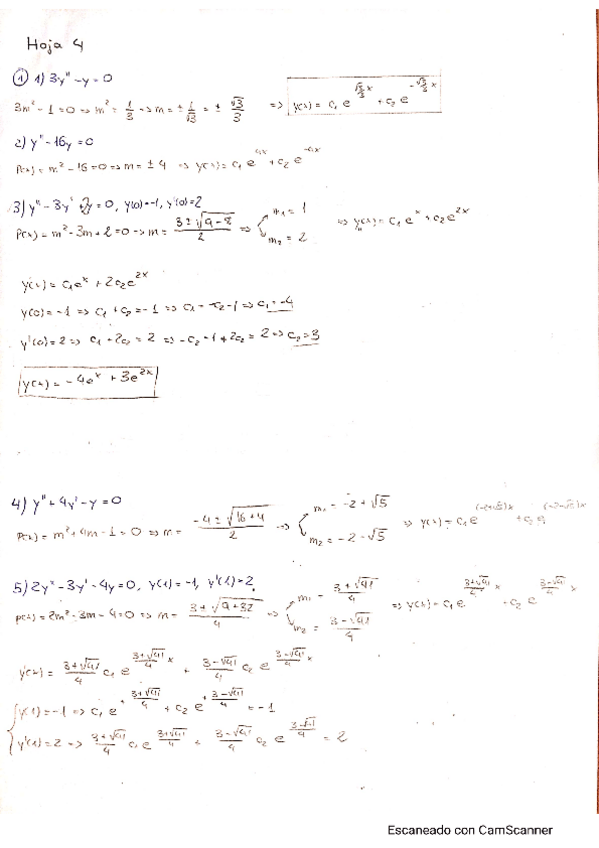 Hoja 4
① 1) 3y'' - y = 0
3m² - 1 = 0 => m² = 1/3 => m = ± 1/√3 = ± √3/3 => y(x) = c₁ e^(√3/3 x) + c₂ e^(-√3/3 x)
2) y'' - 16y = 0
P(x) = m² - 16 = 0 => m = ± 4 => y(x) = c₁ e^(4x) + c₂ e^(-4x)
3) y'' - 3y' + 2y = 0, y(0) = -1, y'(0) = 2
P(x) = m² - 3m + 2 = 0 => m = (3 ± √(9 - 8))/2 => m₁ = 1 m₂ = 2 => y(x) = c₁ e^x + c₂ e^(2x)
y'(x) = c₁ e^x + 2c₂ e^(2x)
y(0) = -1 => c₁ + c₂ = -1 => c₁ = -c₂ - 1 => c₁ = -4
y'(0) = 2 => c₁ + 2c₂ = 2 => -c₂ - 1 + 2c₂ = 2 => c₂ = 3
y(x) = -4e^x + 3e^(2x)
4) y'' + 4y' - y = 0
P(x) = m² + 4m - 1 = 0 => m = (-4 ± √(16 + 4))/2 => m₁ = -2 + √5 m₂ = -2 - √5 => y(x) = c₁ e^((-2+√5)x) + c₂ e^((-2-√5)x)
5) 2y'' - 3y' - 4y = 0, y(1) = -1, y'(1) = 2
P(x) = 2m² - 3m - 4 = 0 => m = (3 ± √(9 + 32))/4 => m₁ = (3 + √41)/4 m₂ = (3 - √41)/4 => y(x) = c₁ e^((3+√41)/4 x) + c₂ e^((3-√41)/4 x)
y'(x) = (3+√41)/4 c₁ e^((3+√41)/4 x) + (3-√41)/4 c₂ e^((3-√41)/4 x)
y(1) = -1 => c₁ e^((3+√41)/4) + c₂ e^((3-√41)/4) = -1
y'(1) = 2 => (3+√41)/4 c₁ e^((3+√41)/4) + (3-√41)/4 c₂ e^((3-√41)/4) = 2
Escaneado con CamScanner